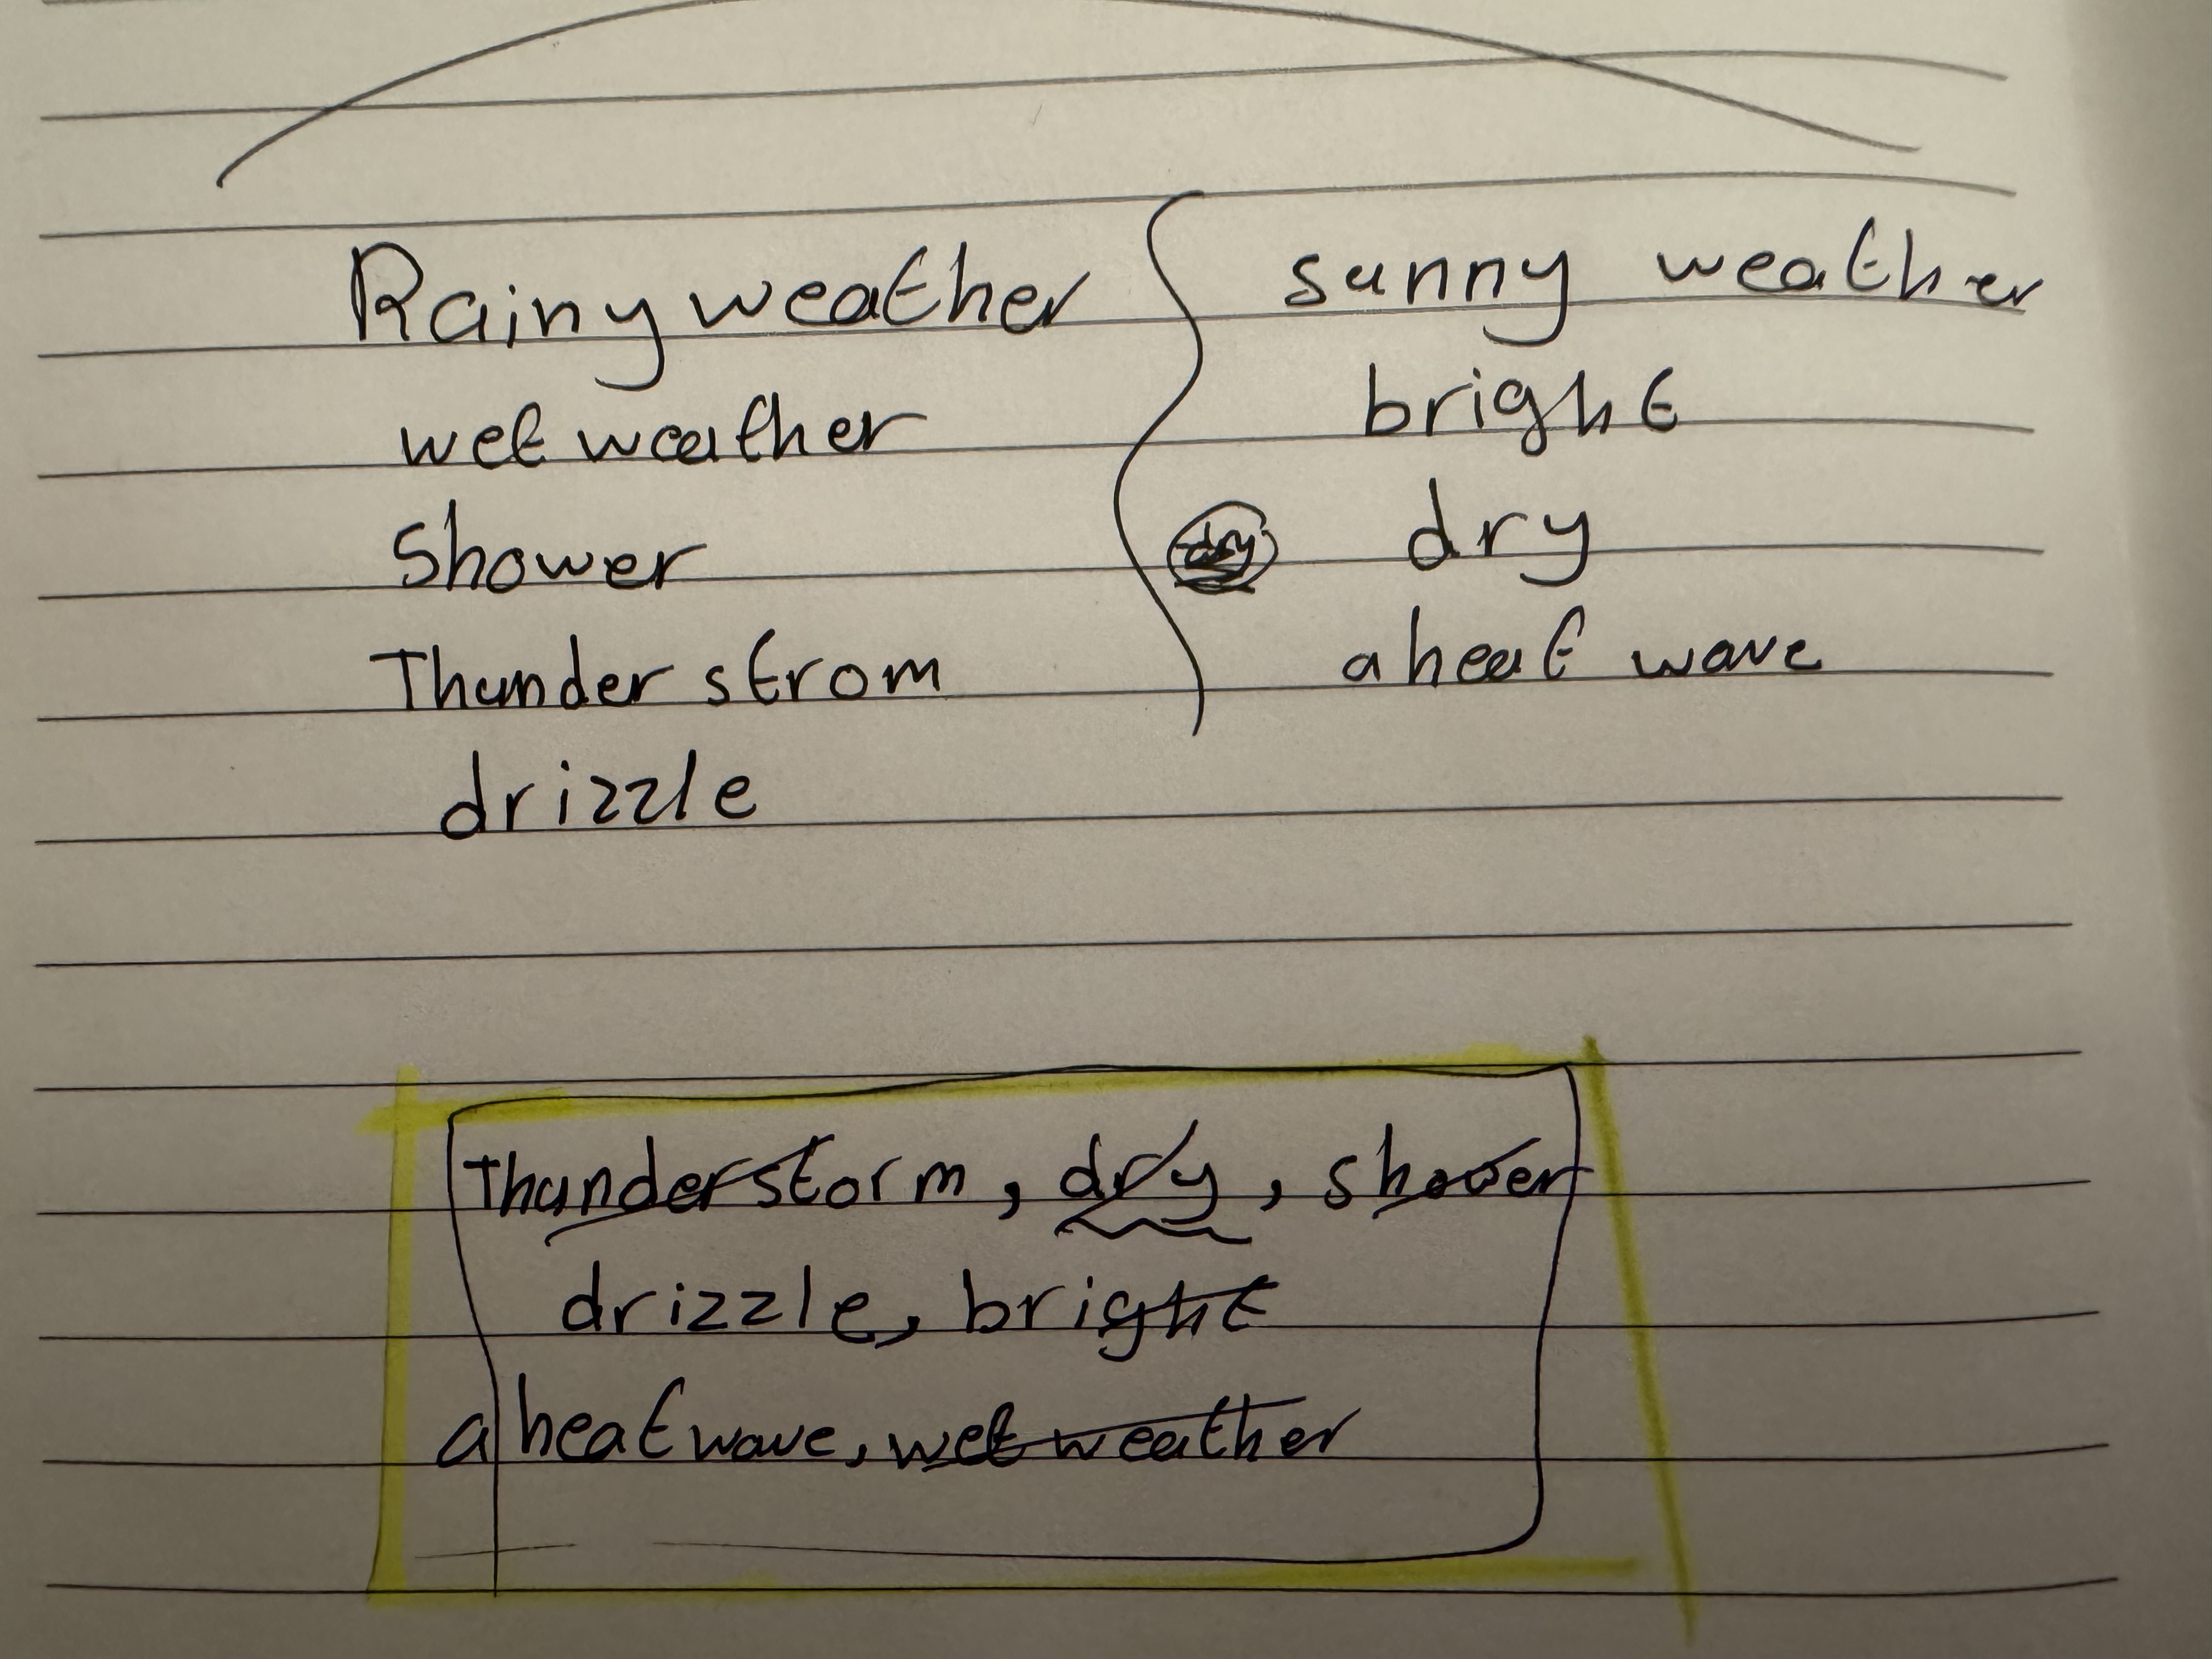 Rainy weather
wet weather
Shower
Thunder strom
drizzle
sunny weather
bright
dry
dry
a heat wave
Thunderstorm, dry, shower
drizzle, bright
a heat wave, wet weather